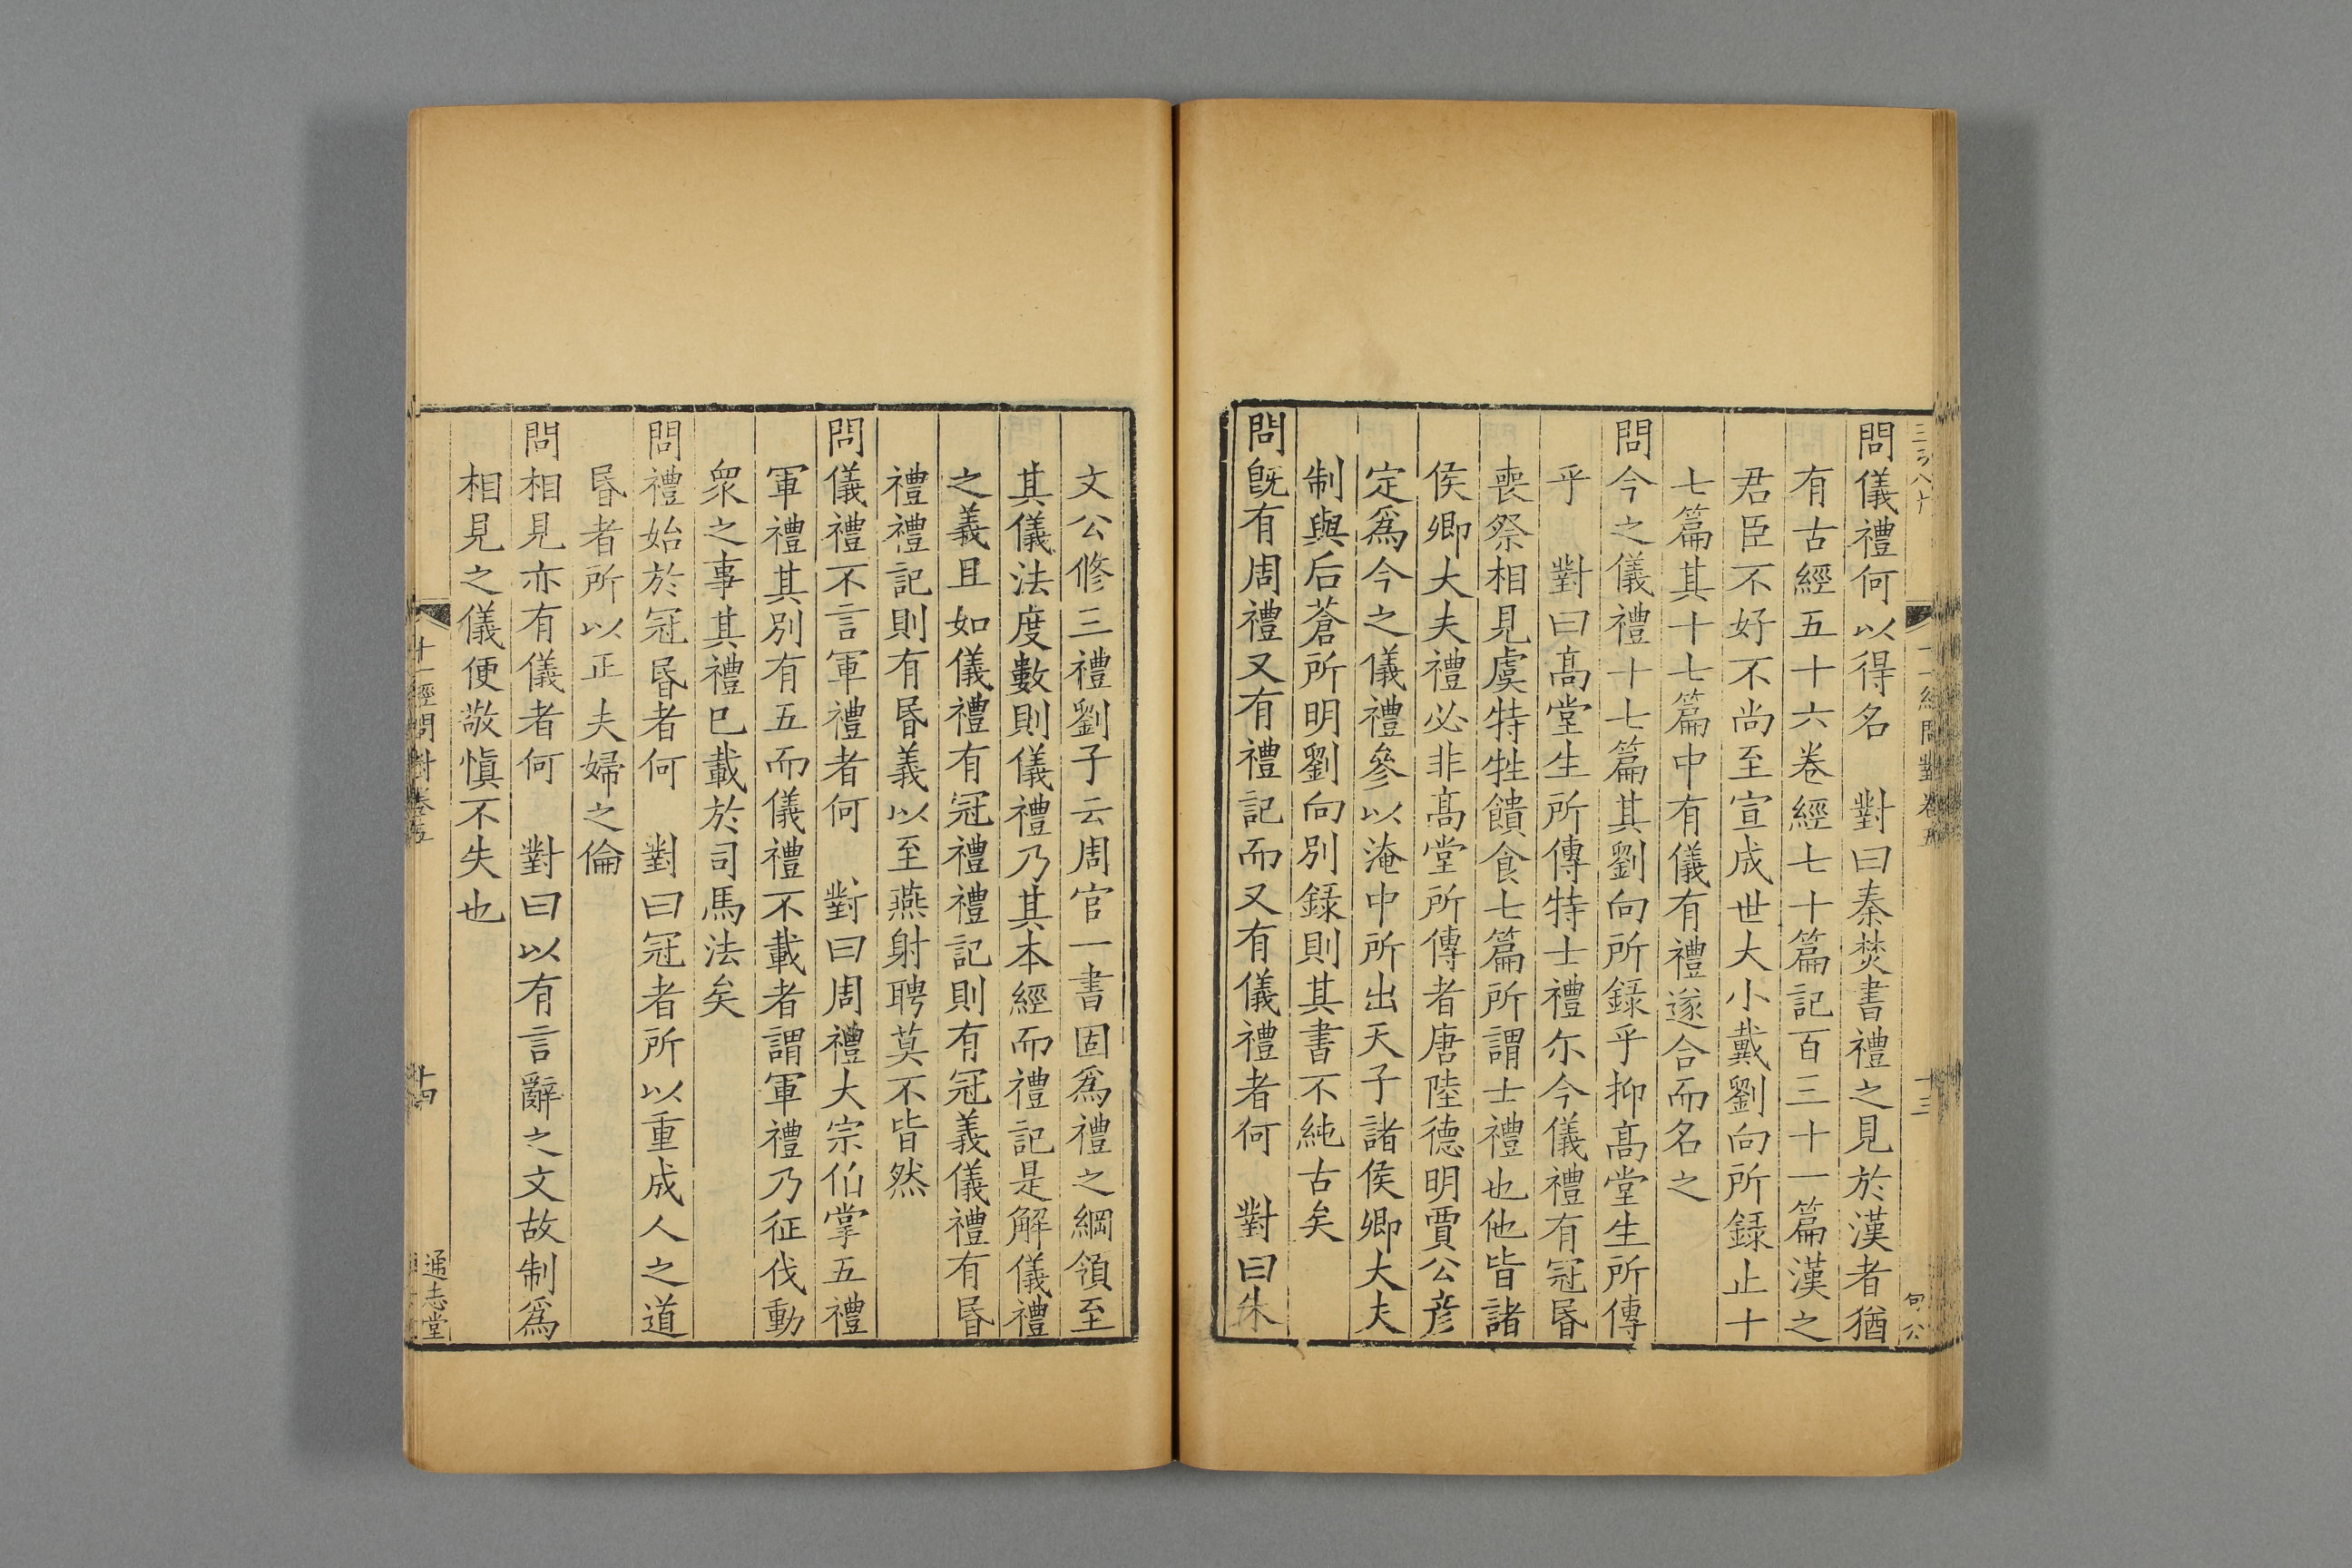 十一經問對卷五
十三
問儀禮何以得名　對曰秦焚書禮之見於漢者猶
有古經五十六卷經七十篇記百三十一篇漢之
君臣不好不尚至宣成世大小戴劉向所録止十
七篇其十七篇中有儀有禮遂合而名之
問今之儀禮十七篇其劉向所録乎抑髙堂生所傳
乎　對曰髙堂生所傳特士禮尓今儀禮有冠昬
喪祭相見虞特牲饋食七篇所謂士禮也他皆諸
侯卿大夫禮必非髙堂所傳者唐陸德明賈公彦
定爲今之儀禮參以淹中所出天子諸侯卿大夫
制與后蒼所明劉向別録則其書不純古矣
問旣有周禮又有禮記而又有儀禮者何　對曰朱
文公修三禮劉子云周官一書固爲禮之綱領至
其儀法度數則儀禮乃其本經而禮記是解儀禮
之義且如儀禮有冠禮禮記則有冠義儀禮有昬
禮禮記則有昬義以至燕射聘莫不皆然
問儀禮不言軍禮者何　對曰周禮大宗伯掌五禮
軍禮其別有五而儀禮不載者謂軍禮乃征伐動
衆之事其禮已載於司馬法矣
問禮始於冠昬者何　對曰冠者所以重成人之道
昬者所以正夫婦之倫
問相見亦有儀者何　對曰以有言辭之文故制爲
相見之儀便敬愼不失也
十一經問對卷五
十四
通志堂